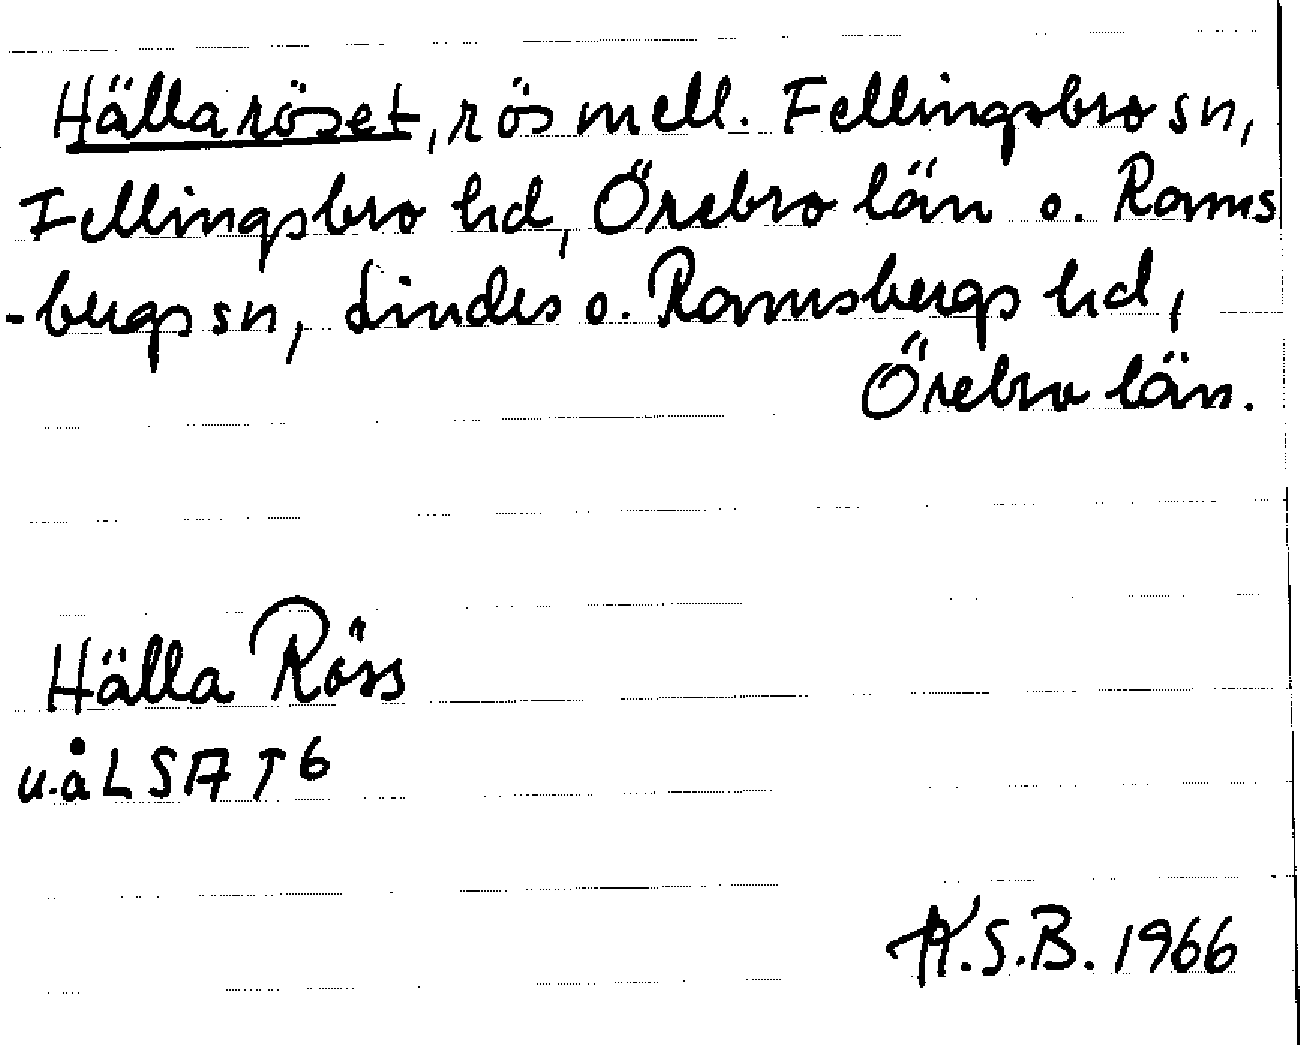 Hällaröset, rös mell. Fellingsbro sn,
Fellingsbro hd, Örebro län o. Rams
-bergs sn, Lindes o. Ramsbergs hd,
Örebro län.
Hälla Röss
u.å LSA T6
K.S.B. 1966